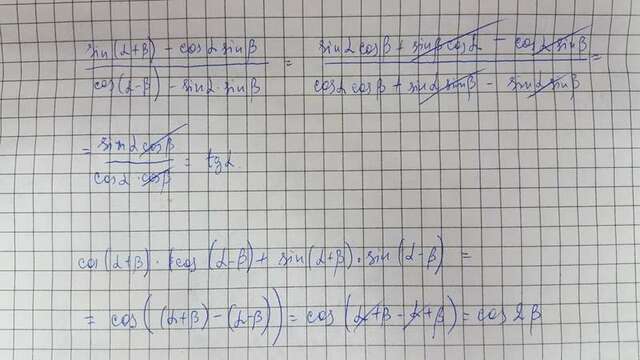 sin(α+β) - cosα sinβ / cos(α-β) - sinα·sinβ = sinα cosβ + sinβ cosα - cosα sinβ / cosα cosβ + sinα sinβ - sinα sinβ =
= sinα cosβ / cosα·cosβ = tgα
cos(α+β)·cos(α-β) + sin(α+β)·sin(α-β) =
= cos((α+β)-(α-β)) = cos(α+β-α+β) = cos2β